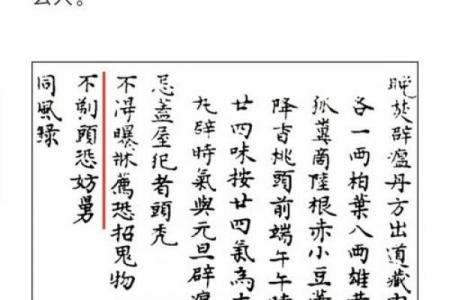 晚焚辟瘟丹方出道藏
各一兩柏葉八兩雄
糞商陸根赤小豆
降眚桃頭前端午午
廿四味按廿四氣為
丸辟時氣與元旦辟瘟
忌蓋屋犯者頭禿
不得曝牀薦恐招鬼物
不剃頭恐妨舅
同風錄